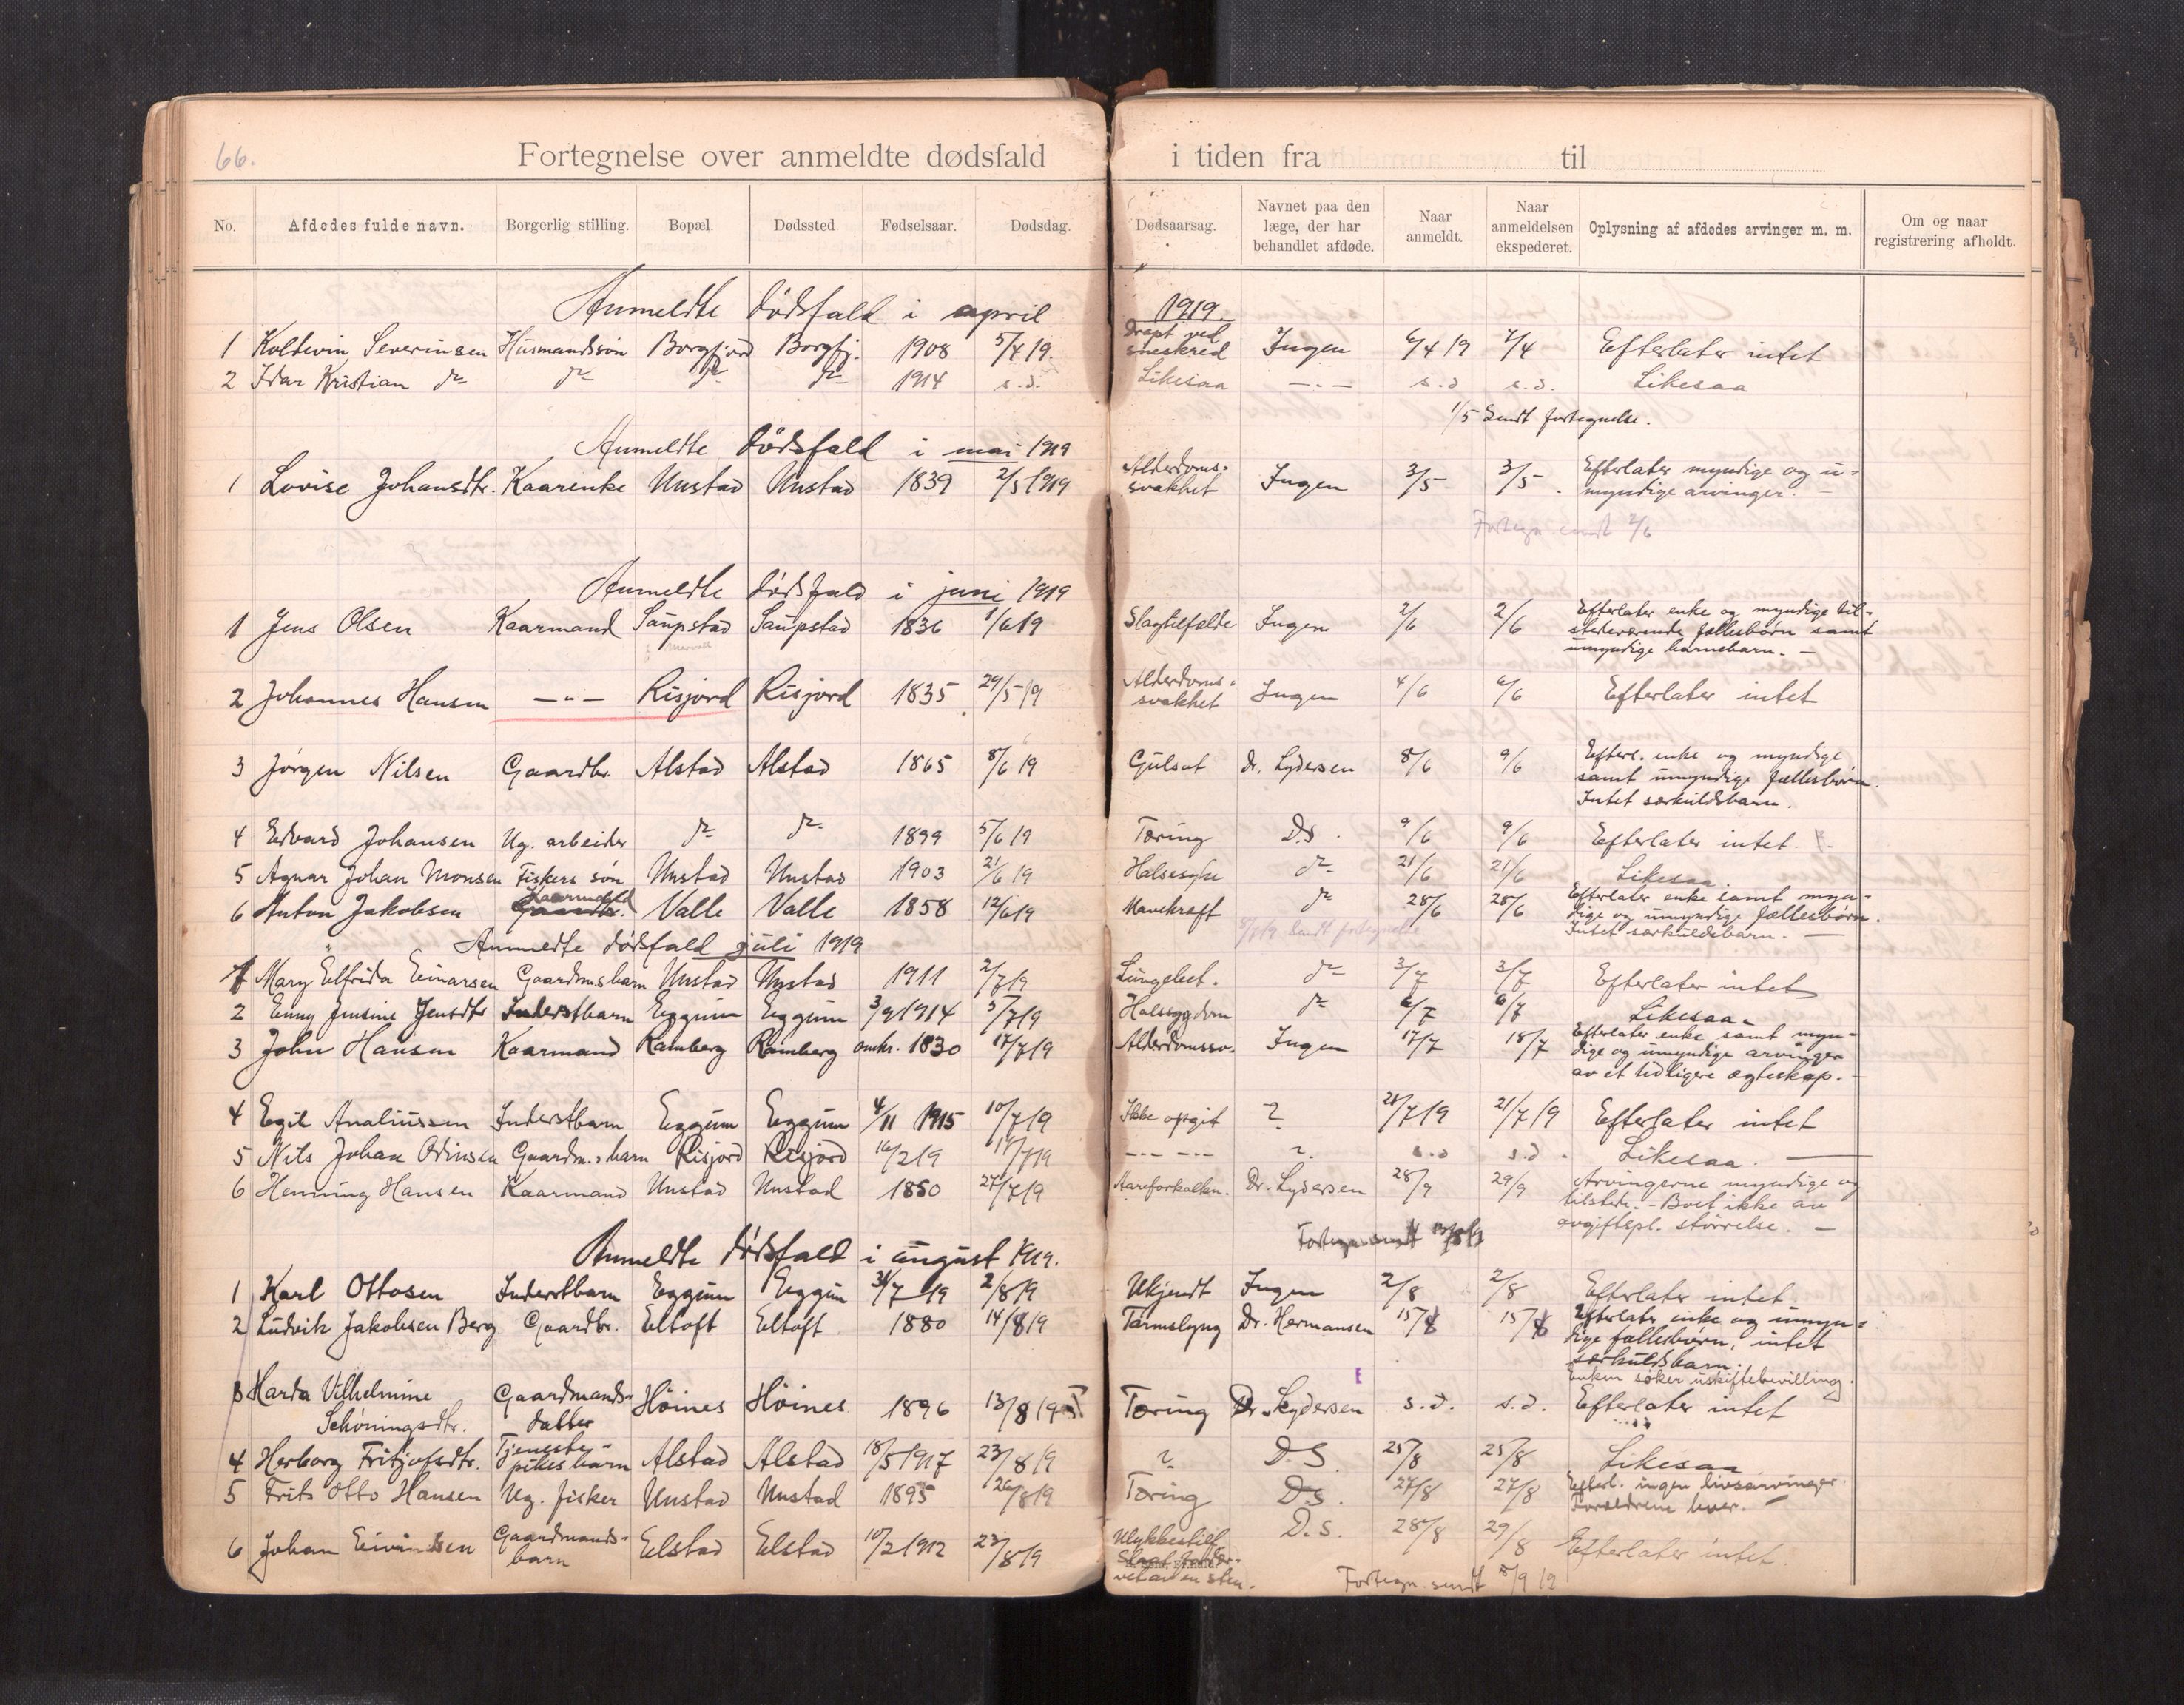 66.
Fortegnelse over anmeldte dødsfald i tiden fra til
No. Afdødes fulde navn. Borgerlig stilling. Bopæl. Dødssted Fødselsaar. Dødsdag. Dødsaarsag. Navnet paa den læge, der har behandlet afdøde. Naar anmeldt. Naar anmeldelsen ekspederet. Oplysning af afdødes arvinger m. m. Om og naar registrering afholdt.
Anmeldte dødsfald i april 1919.
1 Koldevin Severinsen Husmandssøn Borgfjord Borgfj. 1908 5/4 19. Dræpt ved sneskred Ingen 6/4 19 7/4 Efterlater intet
2 Idar Kristian do do do do 1914 s.d. Likesaa —"— s.d s.d. Likesaa
1/5 Sendt fortegnelse.
Anmeldte dødsfald i mai 1919
1 Lovise Johansdtr. Kaarenke Unstad Unstad 1839 2/5 1919 Alderdoms- svakhet Ingen 3/5 3/5 Efterlater myndige og u- myndige arvinger.
Fortegn sendt 2/6
Anmeldte dødsfald i juni 1919
1 Jens Olsen Kaarmand Saupstad Saupstad 1836 1/6 19 Slagtilfælde Ingen 2/6 2/6 Efterlater enke og myndige til- stedeværende fællesbørn samt umyndige barnebarn.
2 Johannes Hansen —"— Risjord Risjord 1835 29/5 19 Alderdoms- svakhet Ingen 4/6 6/6 Efterlater intet
3 Jørgen Nilsen Gaardbr. Alstad Alstad 1865 8/6 19 Gulsot dr. Lydersen 8/6 9/6 Efterl. enke og myndige samt umyndige fællesbørn. Intet særkuldsbarn.
4 Edvard Johansen Ug. arbeider do do 1899 5/6 19 Tæring D.S. 9/6 9/6 Efterlater intet.
5 Agnar Johan Monsen Fiskers søn Unstad Unstad 1903 21/6 19 Halsesyke do 21/6 21/6 Likesaa.
6 Anton Jakobsen Kaarmand Valle Valle 1858 12/6 19 Mavekræft do 28/6 28/6 Efterlater enke samt myn- dige og umyndige fællesbørn. Intet særkuldsbarn.
Sendt fortegnelse
Anmeldte dødsfald juli 1919
1 Mary Elfrida Einarsen Gaardmsbarn Unstad Unstad 1911 2/7 19 Lungebet. do 3/7 3/7 Efterlater intet
2 Enny Jensine Jensdtr Inderstbarn Eggum Eggum 3/9 1914 5/7 19 Halssygdom do 6/7 6/7 Likesaa
3 John Hansen Kaarmand Ramberg Ramberg omkr. 1830 17/7 19 Alderdomssv. Ingen 17/7 18/7 Efterlater enke samt myn- dige og umyndige arvinger av et tidligere ægteskap.
4 Egil Analiussen Inderstbarn Eggum Eggum 4/11 1915 10/7 19 Ikke opgit ? 21/7 19 21/7 19 Efterlater intet
5 Nils Johan Odinsen Gaardm.s barn Risjord Risjord 16/2 19 19 —"— —"— ? s.d s.d. Likesaa.
6 Henning Hansen Kaarmand Unstad Unstad 1850 27/7 19 Aareforkalkn. Dr. Lydersen 28/9 29/9 Arvingerne myndige og tilstede. - Boet ikke av avgiftspl. størrelse.
Fortegn. sendt
Anmeldte dødsfald i august 1919.
1 Karl Ottosen Inderstbarn Eggum Eggum 31/7 19 2/8 19 Ukjendt Ingen 2/8 2/8 Efterlater intet
2 Ludvik Jakobsen Berg Gaardbr. Eltoft Eltoft 1880 14/8 19 Tarmslyng Dr. Hermansen 15/8 15/8 Efterlater enke og umyn- dige fællesbørn, intet særkuldsbarn. Enken søker uskiftebevilling.
3 Harda Vilhelmine Schøningsdtr. Gaardmands- datter Höines Höines 1896 13/8 19 Tæring Dr. Lydersen s.d. s.d. Efterlater intet
4 Herborg Fritjofsdtr. Tjeneste- pikes barn Alstad Alstad 18/5 1917 23/8 19 ? D.S 25/8 25/8 Likesaa
5 Frits Otto Hansen Ug. fisker Unstad Unstad 1895 26/8 19 Tæring D.S. 27/8 27/8 Efterl. ingen livsarvinger. Forældrene lever.
6 Johan Eivindsen Gaardmands- barn Elstad Elstad 10/2 1912 23/8 19 Ulykkestilf. vet av en sten. D.S. 28/8 29/8 Efterlater intet.
Fortegn. sendt 5/9 19